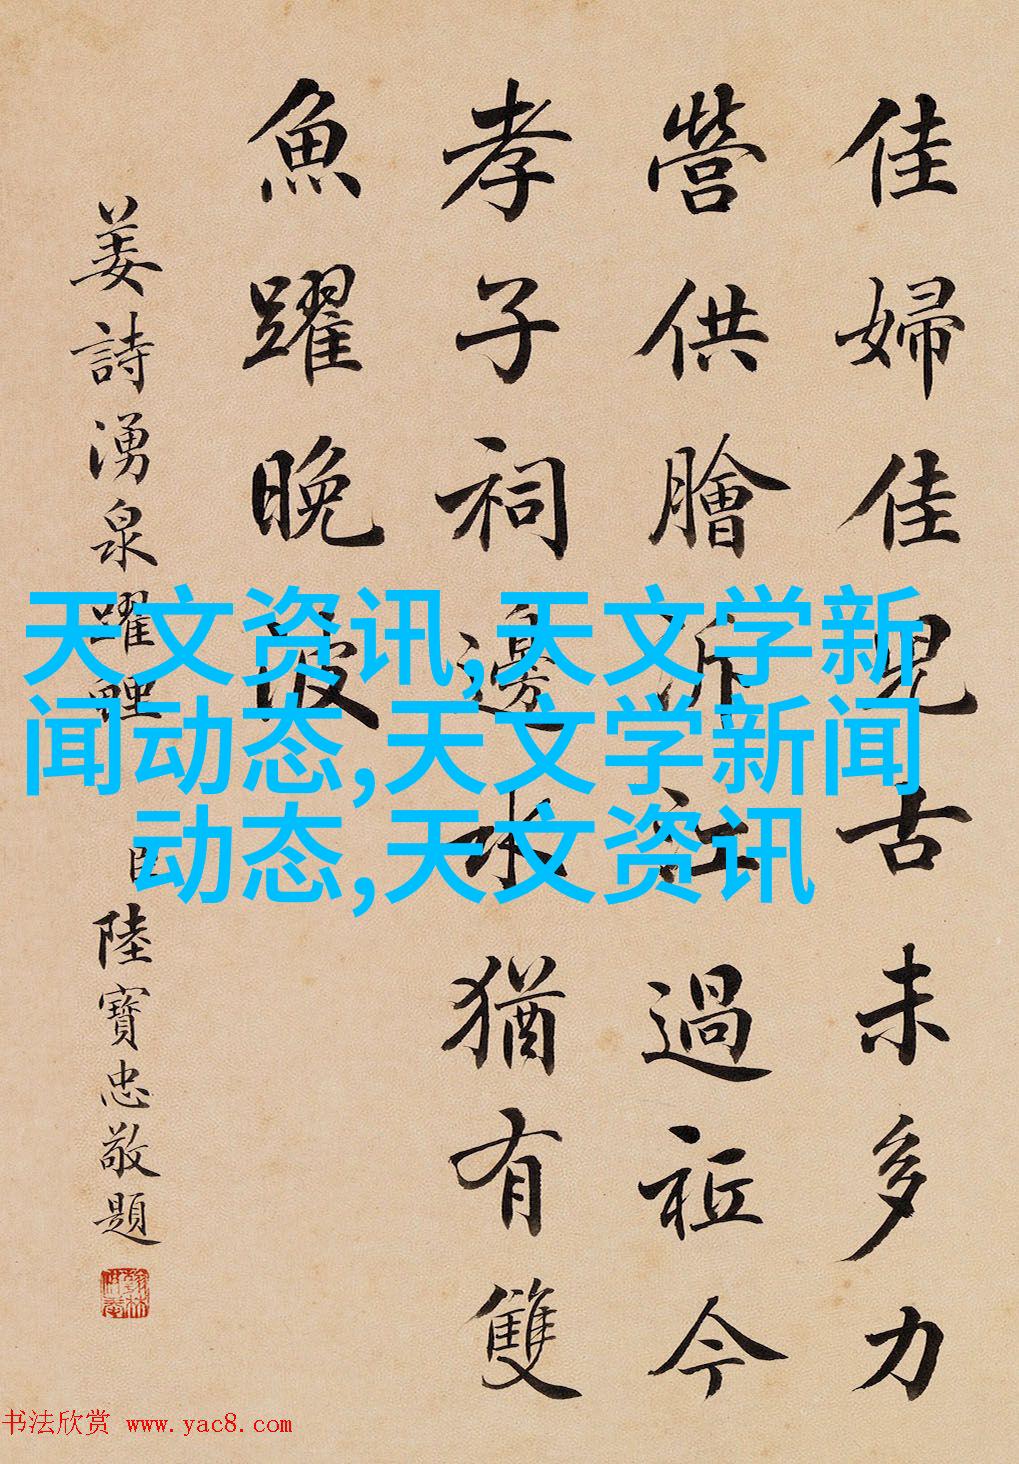 佳婦佳兒古未多力
營供膾泝江過祗今
孝子祠邊水猶有雙
魚躍晚波
姜詩湧泉躍鯉
臣陸寶忠敬題
天文资讯,天文学新
闻动态,天文学新闻
动态,天文资讯
书法欣赏 www.yac8.com